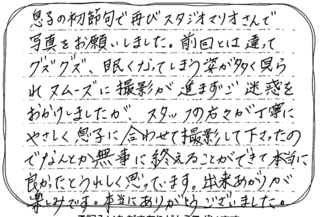 息子の初節句で再びスタジオマリオさんで
写真をお願いしました。前回とは違って
グズグズ、眠くなってしまう姿が多く見ら
れスムーズに撮影が進まずご迷惑を
おかけしましたが、スタッフの方々が丁寧に
やさしく息子に合わせて撮影して下さったの
でなんとか無事に終えることができて本当に
良かったとうれしく思っています。出来あがりが
楽しみです。本当にありがとうございました。